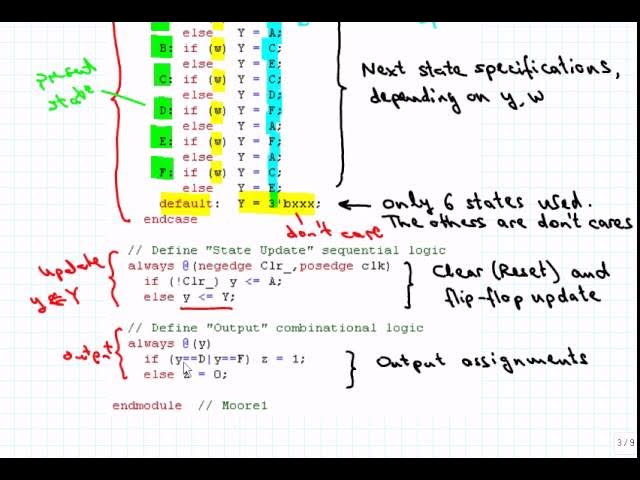 else Y = A;
B: if (w) Y = C;
else Y = E;
C: if (w) Y = C;
else Y = D;
D: if (w) Y = F;
else Y = A;
E: if (w) Y = F;
else Y = A;
F: if (w) Y = C;
else Y = E;
default: Y = 3'bxxx;
endcase
present
state
Next state specifications,
depending on y, w
only 6 states used.
The others are don't cares
don't care
// Define "State Update" sequential logic
always @(negedge Clr_,posedge clk)
if (!Clr_) y <= A;
else y <= Y;
update
y ⇐ Y
Clear (Reset) and
flip-flop update
// Define "Output" combinational logic
always @(y)
if (y==D|y==F) z = 1;
else z = 0;
output
Output assignments
endmodule // Moore1
3 / 9